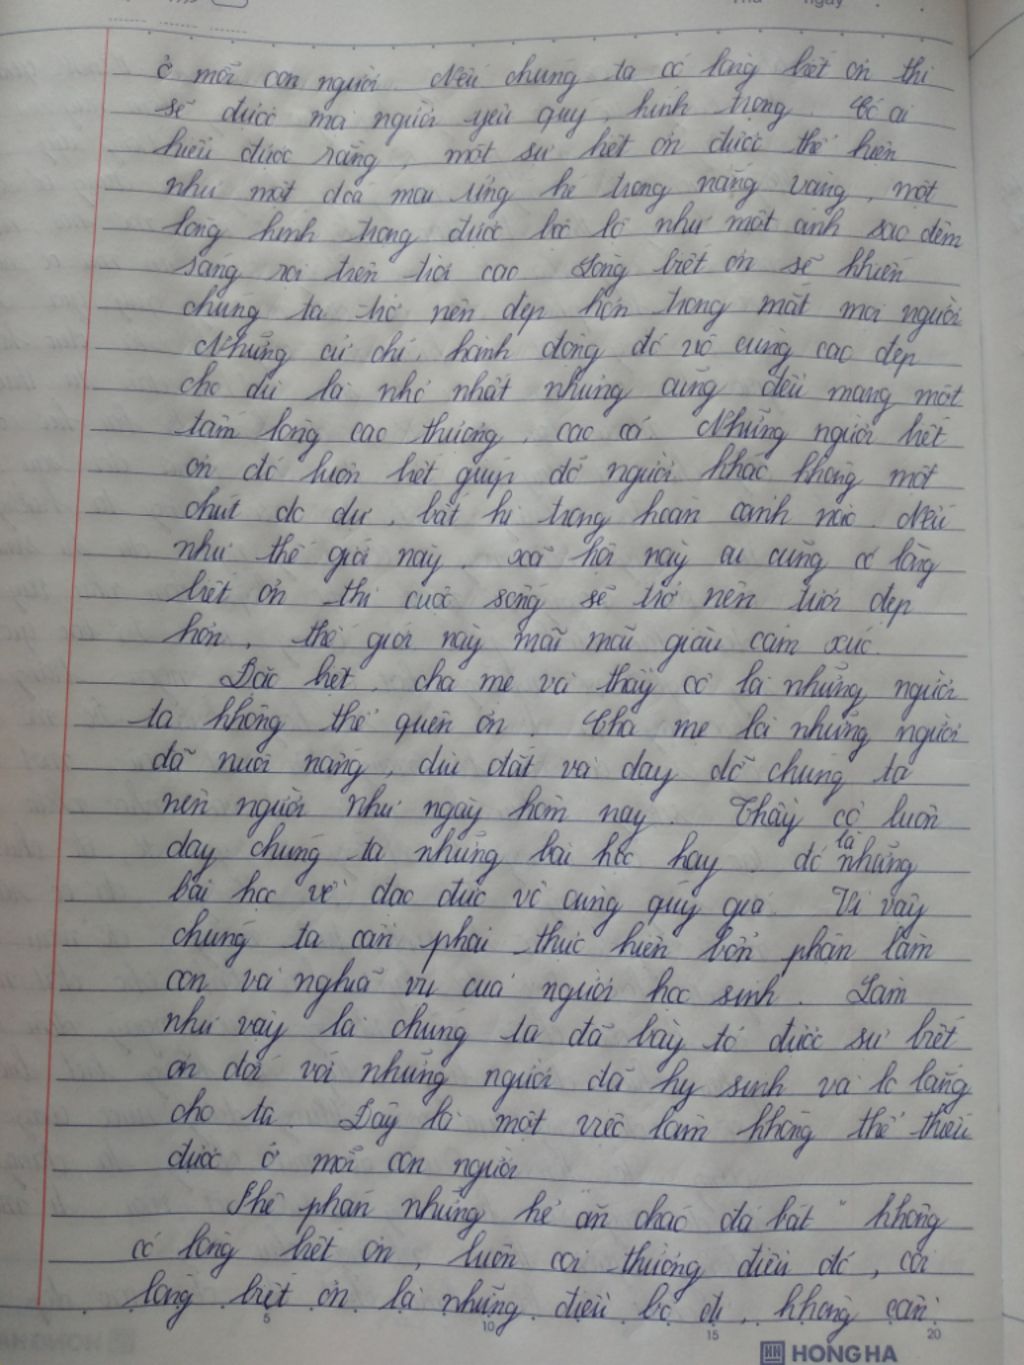 ở mỗi con người. Nếu chúng ta có lòng biết ơn thì
sẽ được mọi người yêu quý, kính trọng. Có ai
hiểu được rằng, một sự biết ơn được thể hiện
như một đoá mai ửng hé trong nắng vàng, một
lòng kính trọng được bộc lộ như một ánh sao đêm
sáng rọi trên trời cao. Lòng biết ơn sẽ khiến
chúng ta trở nên đẹp hơn trong mắt mọi người
Những cử chỉ, hành động đó vô cùng cao đẹp
cho dù là nhỏ nhặt nhưng cũng đều mang một
tấm lòng cao thượng, cao cả. Những người biết
ơn đó luôn biết giúp đỡ người khác không một
chút do dự, bất kì trong hoàn cảnh nào. Nếu
như thế giới này, xã hội này ai cũng có lòng
biết ơn thì cuộc sống sẽ trở nên tươi đẹp
hơn, thế giới này mãi mãi giàu cảm xúc.
Đặc biệt, cha mẹ và thầy cô là những người
ta không thể quên ơn. Cha mẹ là những người
đã nuôi nấng, dìu dắt và dạy dỗ chúng ta
nên người như ngày hôm nay. Thầy cô luôn
dạy chúng ta những bài học hay, đó là những
bài học về đạo đức vô cùng quý giá. Vì vậy
chúng ta cần phải thực hiện bổn phận làm
con và nghĩa vụ của người học sinh. Làm
như vậy là chúng ta đã bày tỏ được sự biết
ơn đối với những người đã hy sinh và lo lắng
cho ta. Đây là một việc làm không thể thiếu
được ở mỗi con người
Phê phán những kẻ ăn cháo đá bát" không
có lòng biết ơn, luôn coi thường điều đó, coi
lòng biết ơn là những điều bỏ đi, không cần
5 10 15 20
HONG HA